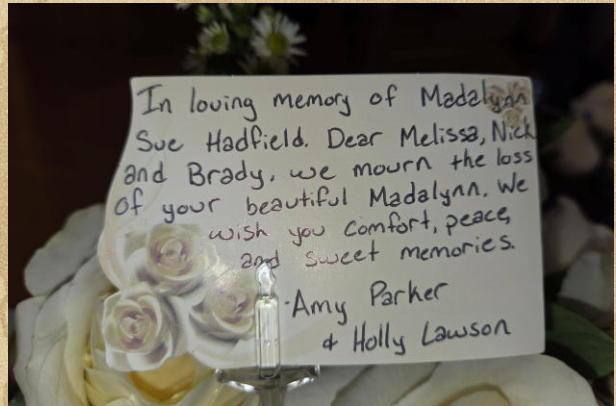 In loving memory of Madalynn
Sue Hadfield. Dear Melissa, Nick
and Brady, we mourn the loss
of your beautiful Madalynn. We
wish you comfort, peace,
and sweet memories.
-Amy Parker
& Holly Lawson